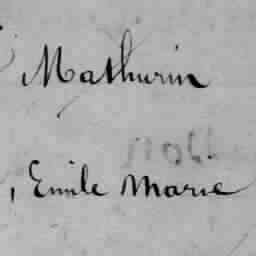 Mathurin
, Emile Marie